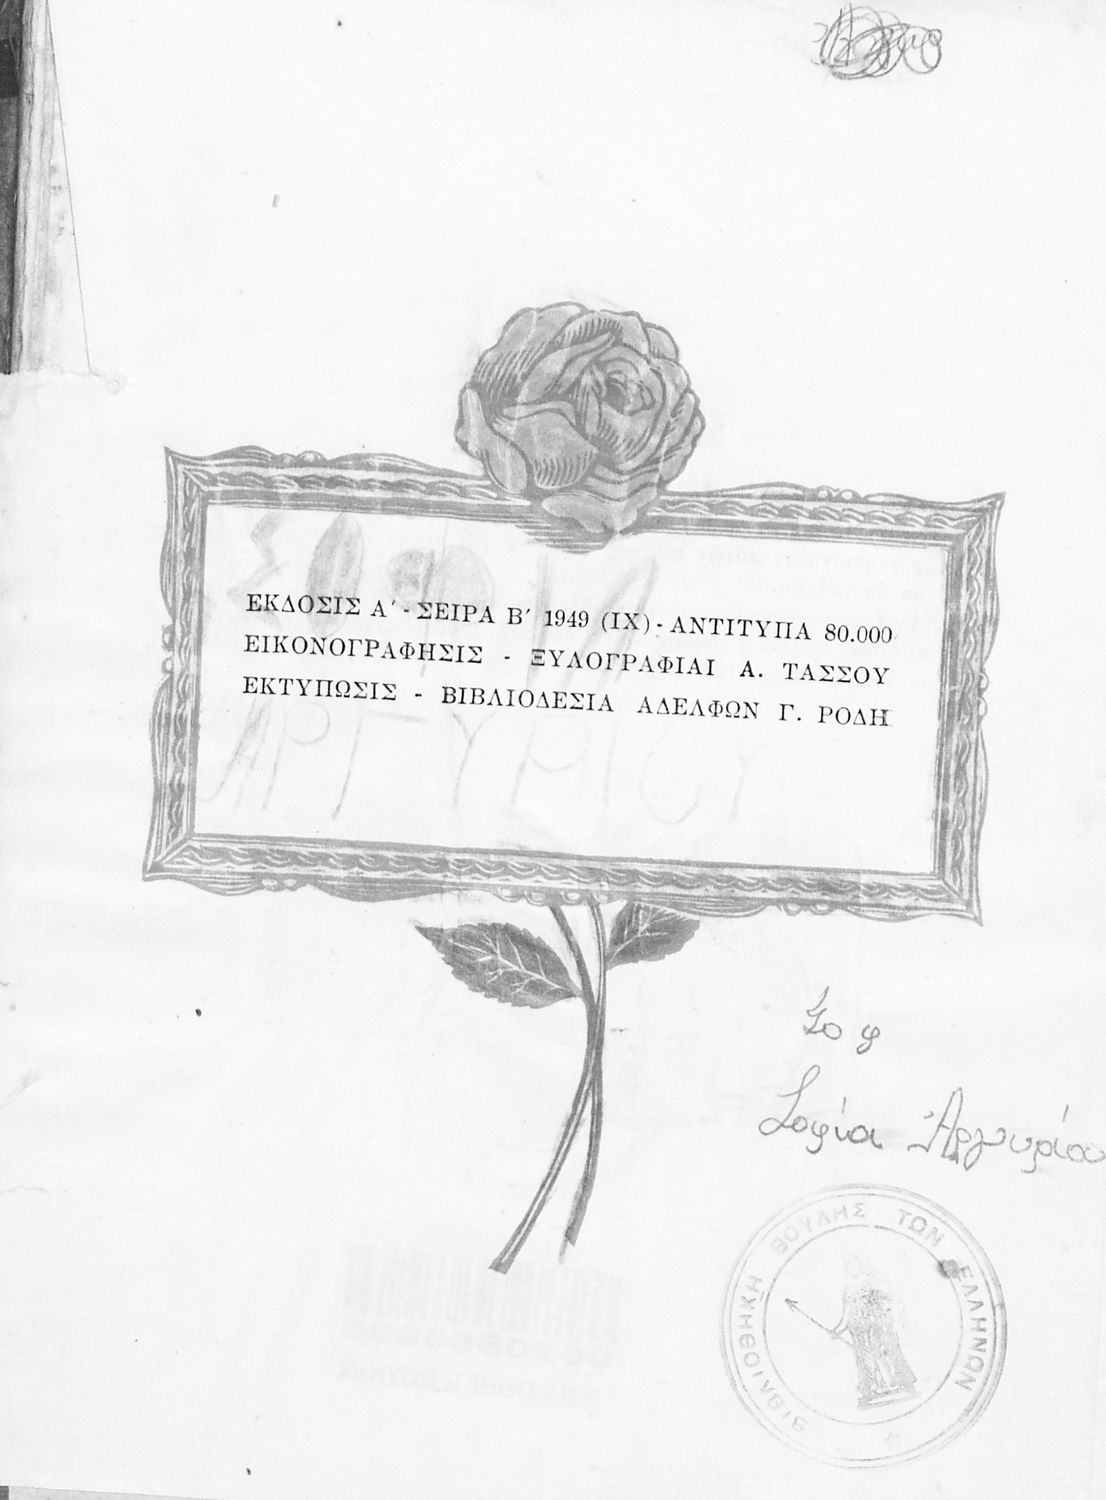 ΣΟΦΙΑ
ΕΚΔΟΣΙΣ Α΄ - ΣΕΙΡΑ Β΄ 1949 (IX) - ΑΝΤΙΤΥΠΑ 80.000
ΕΙΚΟΝΟΓΡΑΦΗΣΙΣ - ΞΥΛΟΓΡΑΦΙΑΙ Α. ΤΑΣΣΟΥ
ΕΚΤΥΠΩΣΙΣ - ΒΙΒΛΙΟΔΕΣΙΑ ΑΔΕΛΦΩΝ Γ. ΡΟΔΗ
ΑΡΓΥΡΙΟΥ
Σο φ
Σοφία Ἀργυρίου
ΒΙΒΛΙΟΘΗΚΗ ΒΟΥΛΗΣ ΤΩΝ ΕΛΛΗΝΩΝ